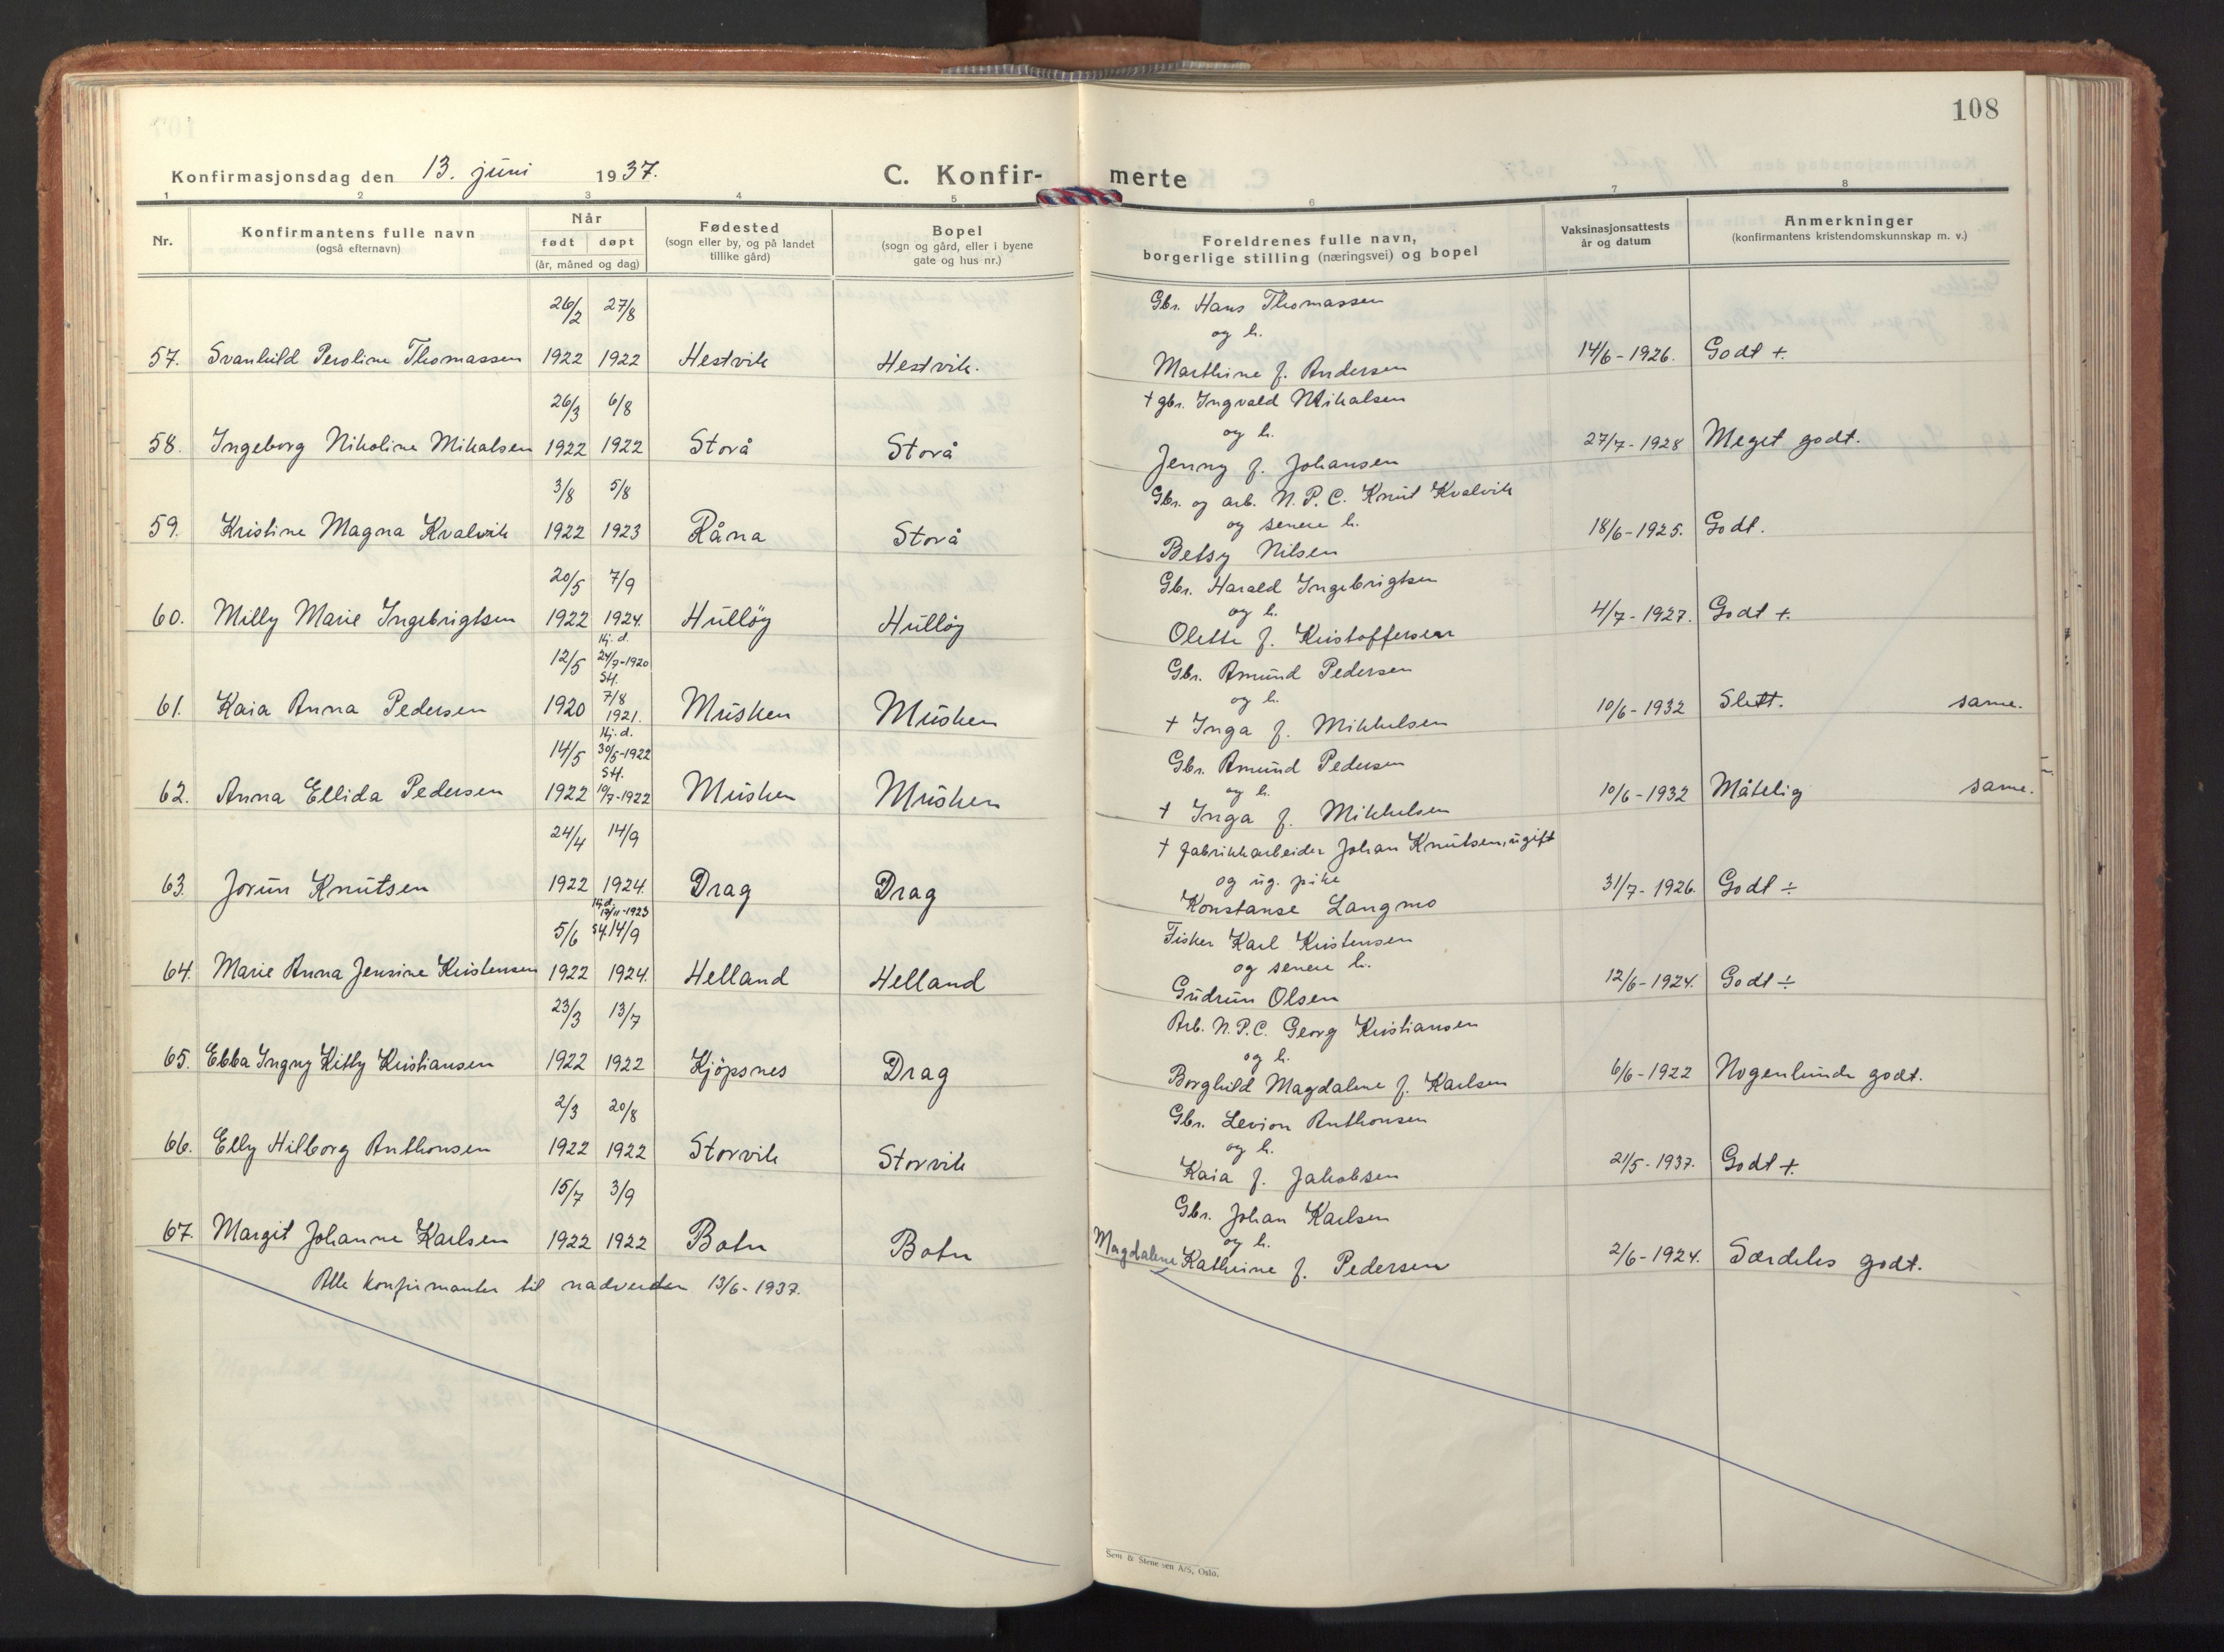 108
Konfirmasjonsdag den 13. juni 1937.
C. Konfir- merte
1 2 3 4 5 6 7 8
Nr.
Konfirmantens fulle navn
(også efternavn)
Når
født døpt
(år, måned og dag)
Fødested
(sogn eller by, og på landet
tillike gård)
Bopel
(sogn og gård, eller i byene
gate og hus nr.)
Foreldrenes fulle navn,
borgerlige stilling (næringsvei) og bopel
Vaksinasjonsattests
år og datum
Anmerkninger
(konfirmantens kristendomskunnskap m. v.)
26/2 27/8 Gbr. Hans Thomassen
og h.
57. Svanhild Peroline Thomassen 1922 1922 Hestvik Hestvik. Marthine f. Andersen 14/6-1926. Godt +.
26/3 6/8 + gbr. Ingvald Mikalsen
og h.
58. Ingeborg Nikoline Mikalsen 1922 1922 Storå Storå Jenny f. Johansen 27/7-1928 Meget godt.
3/8 5/8 Gbr. og arb. N.P.C. Knut Kvalvik
og senere h.
59. Kristine Magna Kvalvik 1922 1923 Råna Storå Betsy Nilsen 18/6-1925. Godt.
20/5 7/9 Gbr. Harald Ingebrigtsen
og h.
60. Milly Marie Ingebrigtsen 1922 1924. Hulløy Hulløy Olette f. Kristoffersen 4/7-1927. Godt +.
Hj. d.
12/5 24/7-1920 Gbr. Amund Pedersen
St. 7/8 og h.
61. Kaia Anna Pedersen 1920 1921. Musken Musken + Inga f. Mikkelsen 10/6-1932 Slett. same.
Hj. d.
14/5 30/5-1922 Gbr. Amund Pedersen
St. og h.
62. Anna Ellida Pedersen 1922 19/7-1922 Musken Musken + Inga f. Mikkelsen 10/6-1932 Måtelig same.
24/4 14/9 + fabrikkarbeider Johan Knutsen, ugift
og ug. pike
63. Jorun Knutsen 1922 1924. Drag Drag Konstanse Langmo 31/7-1926. Godt ÷
Hj. d.
5/6 St. 14/9 Fisker Karl Kristensen
og senere h.
64. Marie Anna Jensine Kristensen 1922 1924. Helland Helland Gudrun Olsen 12/6-1924. Godt ÷
23/3 13/7 Arb. N.P.C. Georg Kristiansen
og h.
65. Ebba Ingny Kitty Kristiansen 1922 1922 Kjøpsnes Drag Borghild Magdalene f. Karlsen 6/6-1922 Nogenlunde godt.
2/3 20/8 Gbr. Levion Anthonsen
og h.
66. Elly Hilborg Anthonsen 1922 1922 Storvik Storvik Kaia f. Jakobsen 21/5-1937. Godt +.
15/7 3/9 Gbr. Johan Karlsen
og h.
67. Margit Johanne Karlsen 1922 1922 Botn Botn Magdalene Kathrine f. Pedersen 2/6-1924. Særdeles godt.
Alle konfirmanter til nadverden 13/6-1937.
Sem & Stenersen A/S, Oslo.